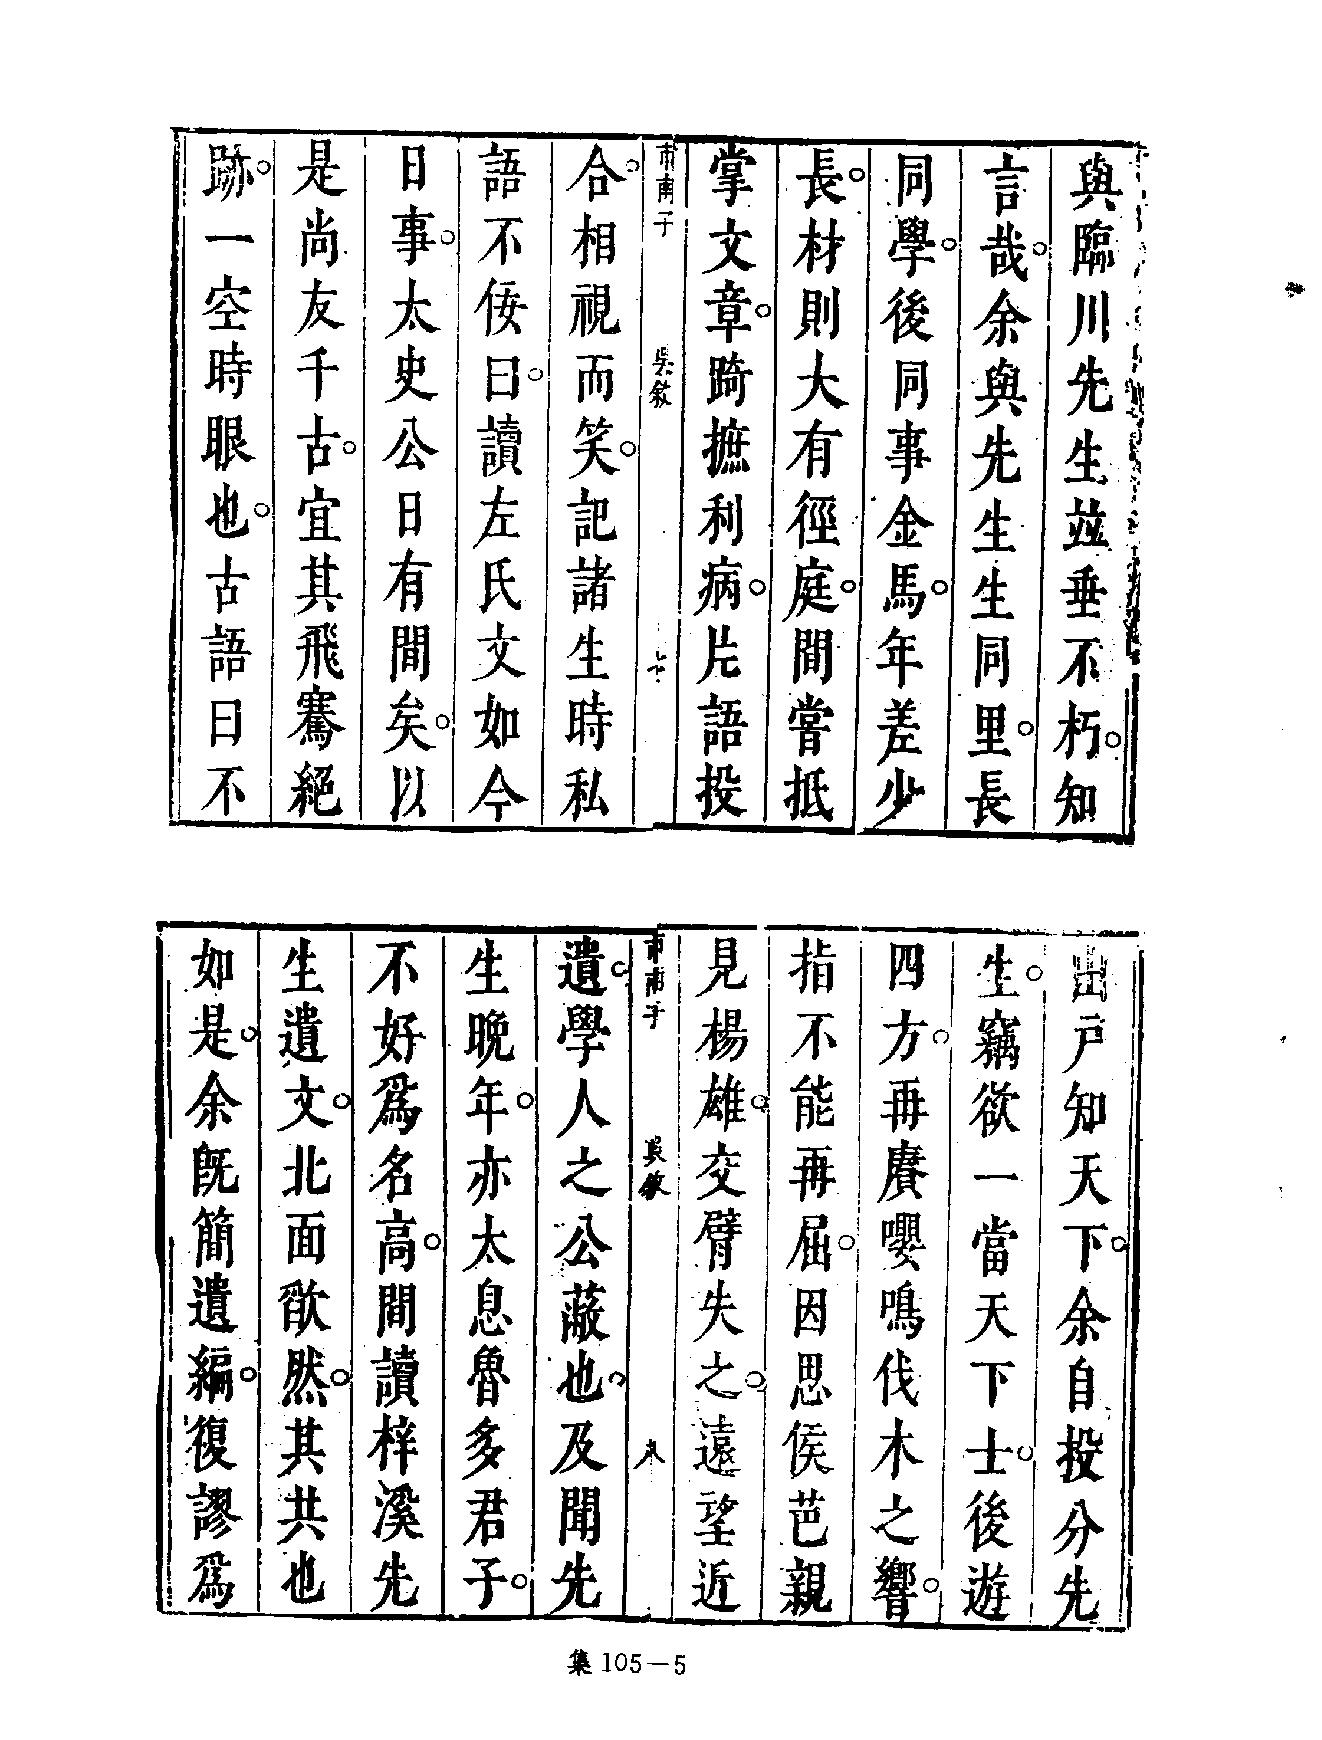 與臨川先生竝垂不朽。知
言哉。余與先生生同里。長
同學。後同事金馬。年差少
長。材則大有徑庭。間嘗抵
掌文章。踦摭利病。片語投
市南子 吳敘 七
合。相視而笑。記諸生時私
語不佞曰。讀左氏文如今
日事。太史公日有間矣。以
是尚友千古。宜其飛騫絕
跡。一空時眼也。古語曰不
出戶知天下。余自投分先
生。竊欲一當天下士。後遊
四方。再賡嚶鳴伐木之響。
指不能再屈。因思侯芭親
見楊雄。交臂失之。遠望近
市南子 吳敘
遺。學人之公蔽也。及聞先
生晚年。亦太息魯多君子。
不好爲名高。間讀梓溪先
生遺文。北面歛然。其共也
如是。余既簡遺編。復謬爲
集 105—5